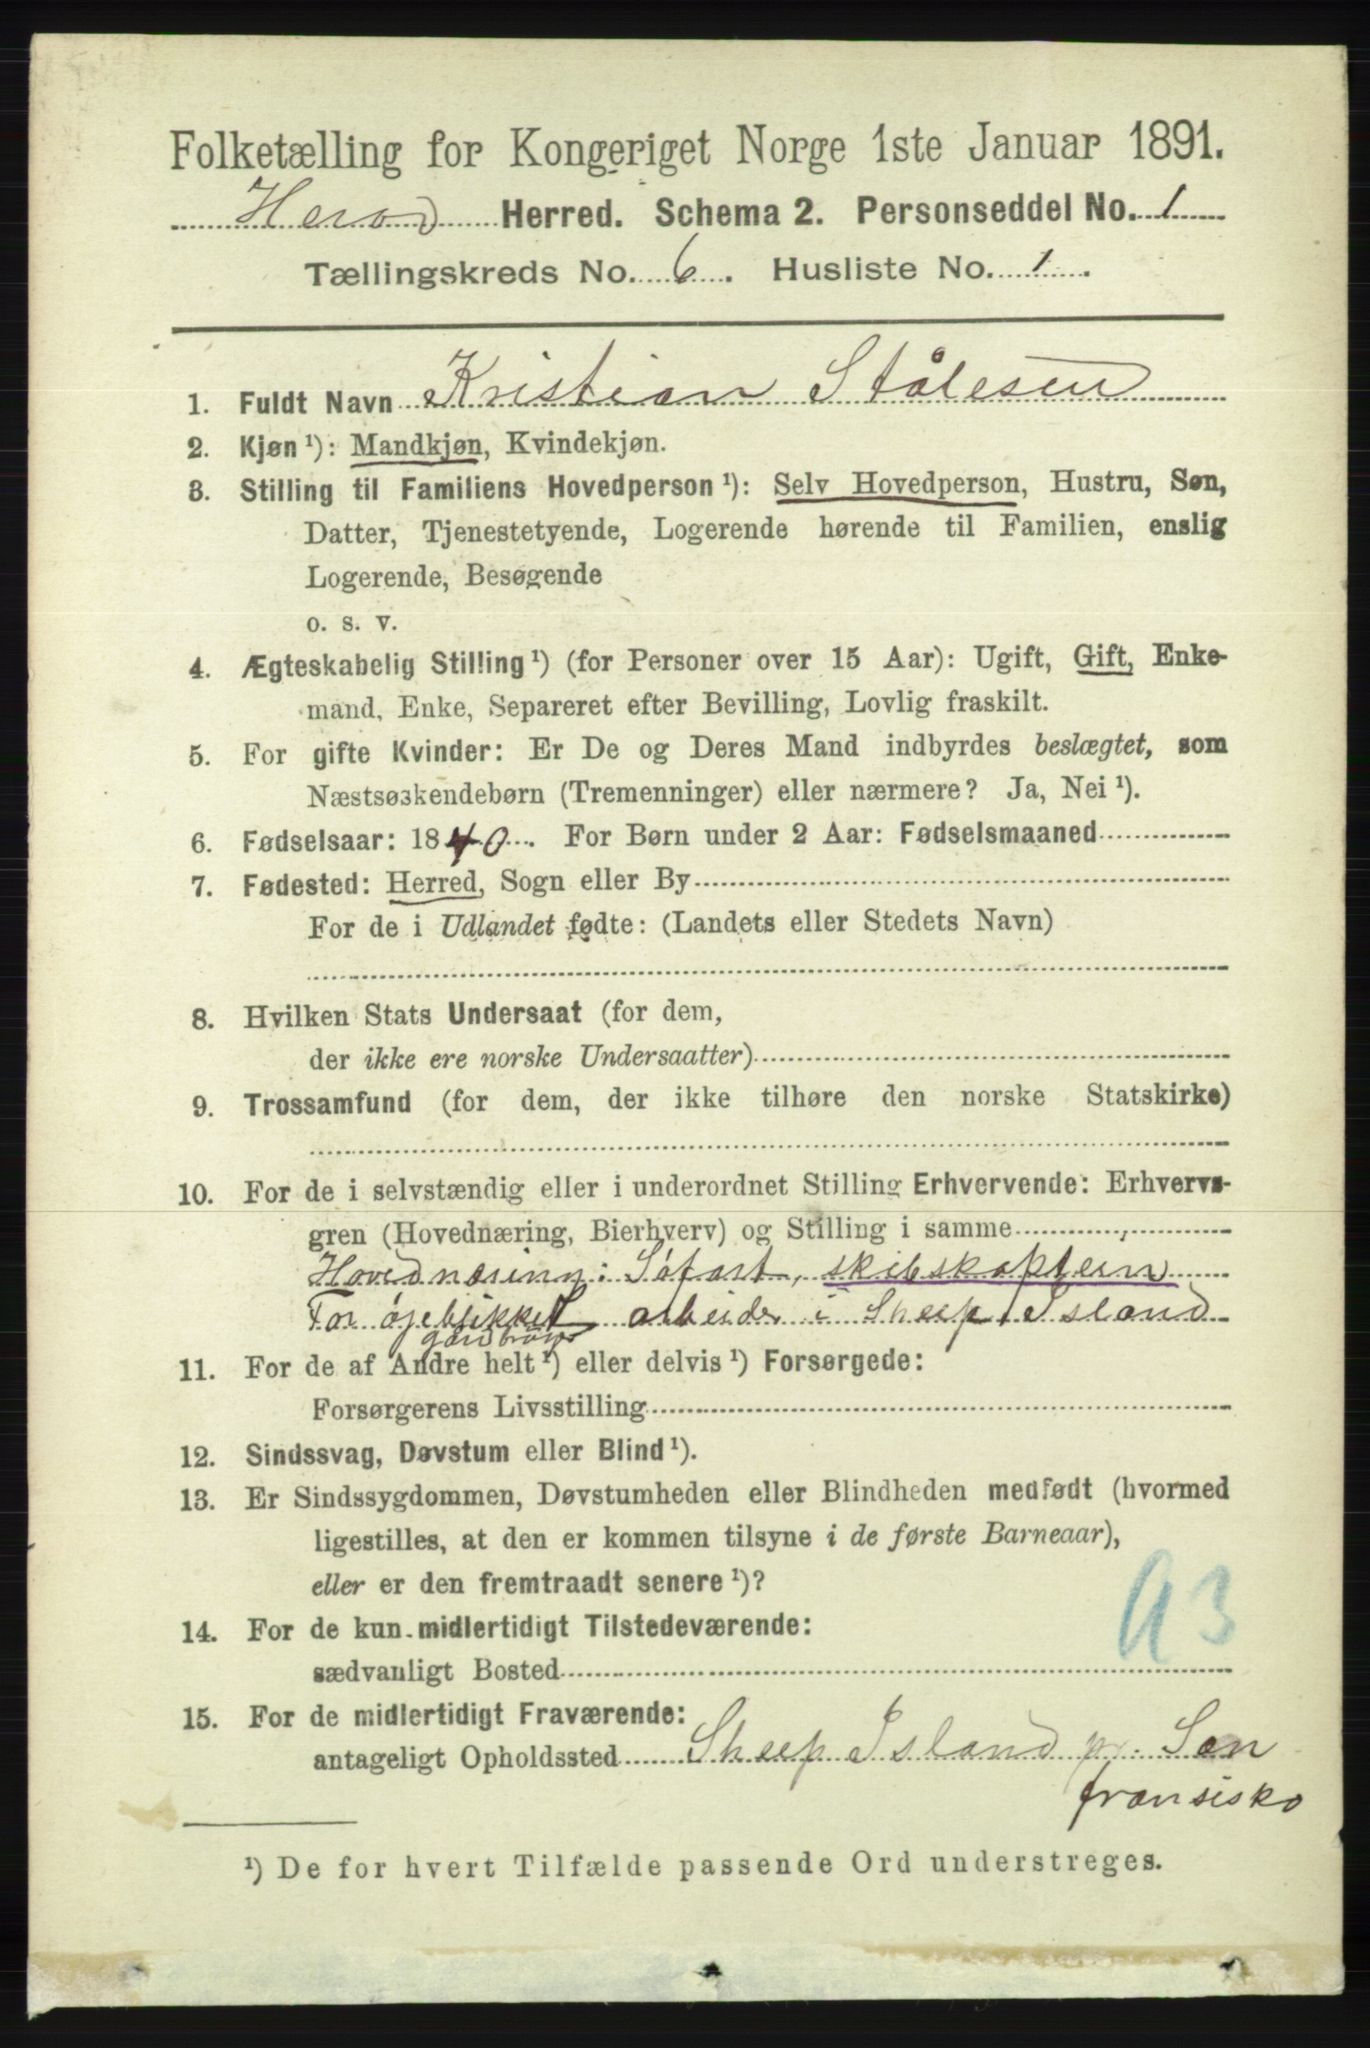 Folketælling for Kongeriget Norge 1ste Januar 1891.
Herod Herred. Schema 2. Personseddel No. 1
Tællingskreds No. 6. Husliste No. 1.
1. Fuldt Navn Kristian Stålesen
2. Kjøn ¹): Mandkjøn, Kvindekjøn.
3. Stilling til Familiens Hovedperson ¹): Selv Hovedperson, Hustru, Søn,
Datter, Tjenestetyende, Logerende hørende til Familien, enslig
Logerende, Besøgende
o. s. v.
4. Ægteskabelig Stilling ¹) (for Personer over 15 Aar): Ugift, Gift, Enke-
mand, Enke, Separeret efter Bevilling, Lovlig fraskilt.
5. For gifte Kvinder: Er De og Deres Mand indbyrdes beslægtet, som
Næstsøskendebørn (Tremenninger) eller nærmere? Ja, Nei ¹).
6. Fødselsaar: 1840. For Børn under 2 Aar: Fødselsmaaned
7. Fødested: Herred, Sogn eller By
For de i Udlandet fødte: (Landets eller Stedets Navn)
8. Hvilken Stats Undersaat (for dem,
der ikke ere norske Undersaatter)
9. Trossamfund (for dem, der ikke tilhøre den norske Statskirke)
10. For de i selvstændig eller i underordnet Stilling Erhvervende: Erhvervs-
gren (Hovednæring, Bierhverv) og Stilling i samme
Hovednæring: Søfart, skibskaptein
For øjeblikket arbeider i Sheep Island
gårdbrug
11. For de af Andre helt ¹) eller delvis ¹) Forsørgede:
Forsørgerens Livsstilling
12. Sindssvag, Døvstum eller Blind ¹).
13. Er Sindssygdommen, Døvstumheden eller Blindheden medfødt (hvormed
ligestilles, at den er kommen tilsyne i de første Barneaar),
eller er den fremtraadt senere ¹)?
14. For de kun midlertidigt Tilstedeværende:
sædvanligt Bosted
15. For de midlertidigt Fraværende:
antageligt Opholdssted Sheep Island pr. San
fransisko
¹) De for hvert Tilfælde passende Ord understreges.